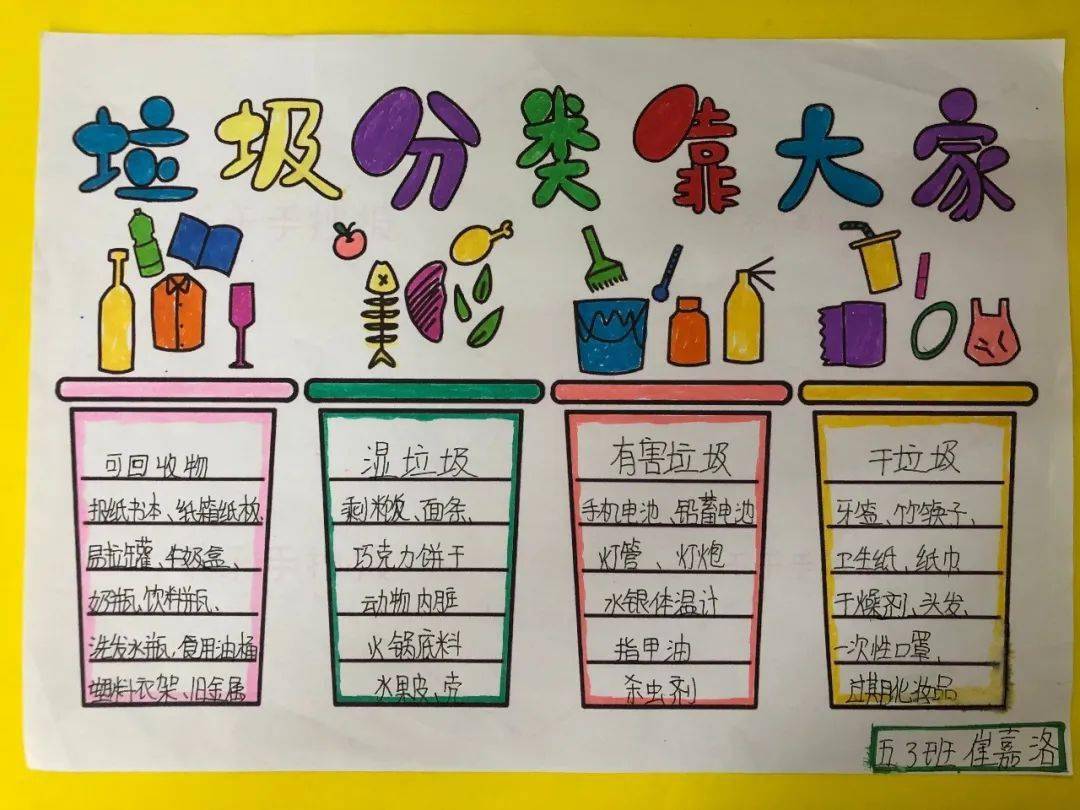 垃圾分类靠大家
可回收物
报纸书本、纸箱纸板、
易拉罐、牛奶盒、
奶瓶、饮料瓶、
洗发水瓶、食用油桶
塑料衣架、旧金属
湿垃圾
剩米饭、面条、
巧克力饼干
动物内脏
火锅底料
水果皮、壳
有害垃圾
手机电池、铅蓄电池
灯管、灯炮
水银体温计
指甲油
杀虫剂
干垃圾
牙签、竹筷子、
卫生纸、纸巾
干燥剂、头发、
一次性口罩、
过期化妆品
五3班崔嘉洛